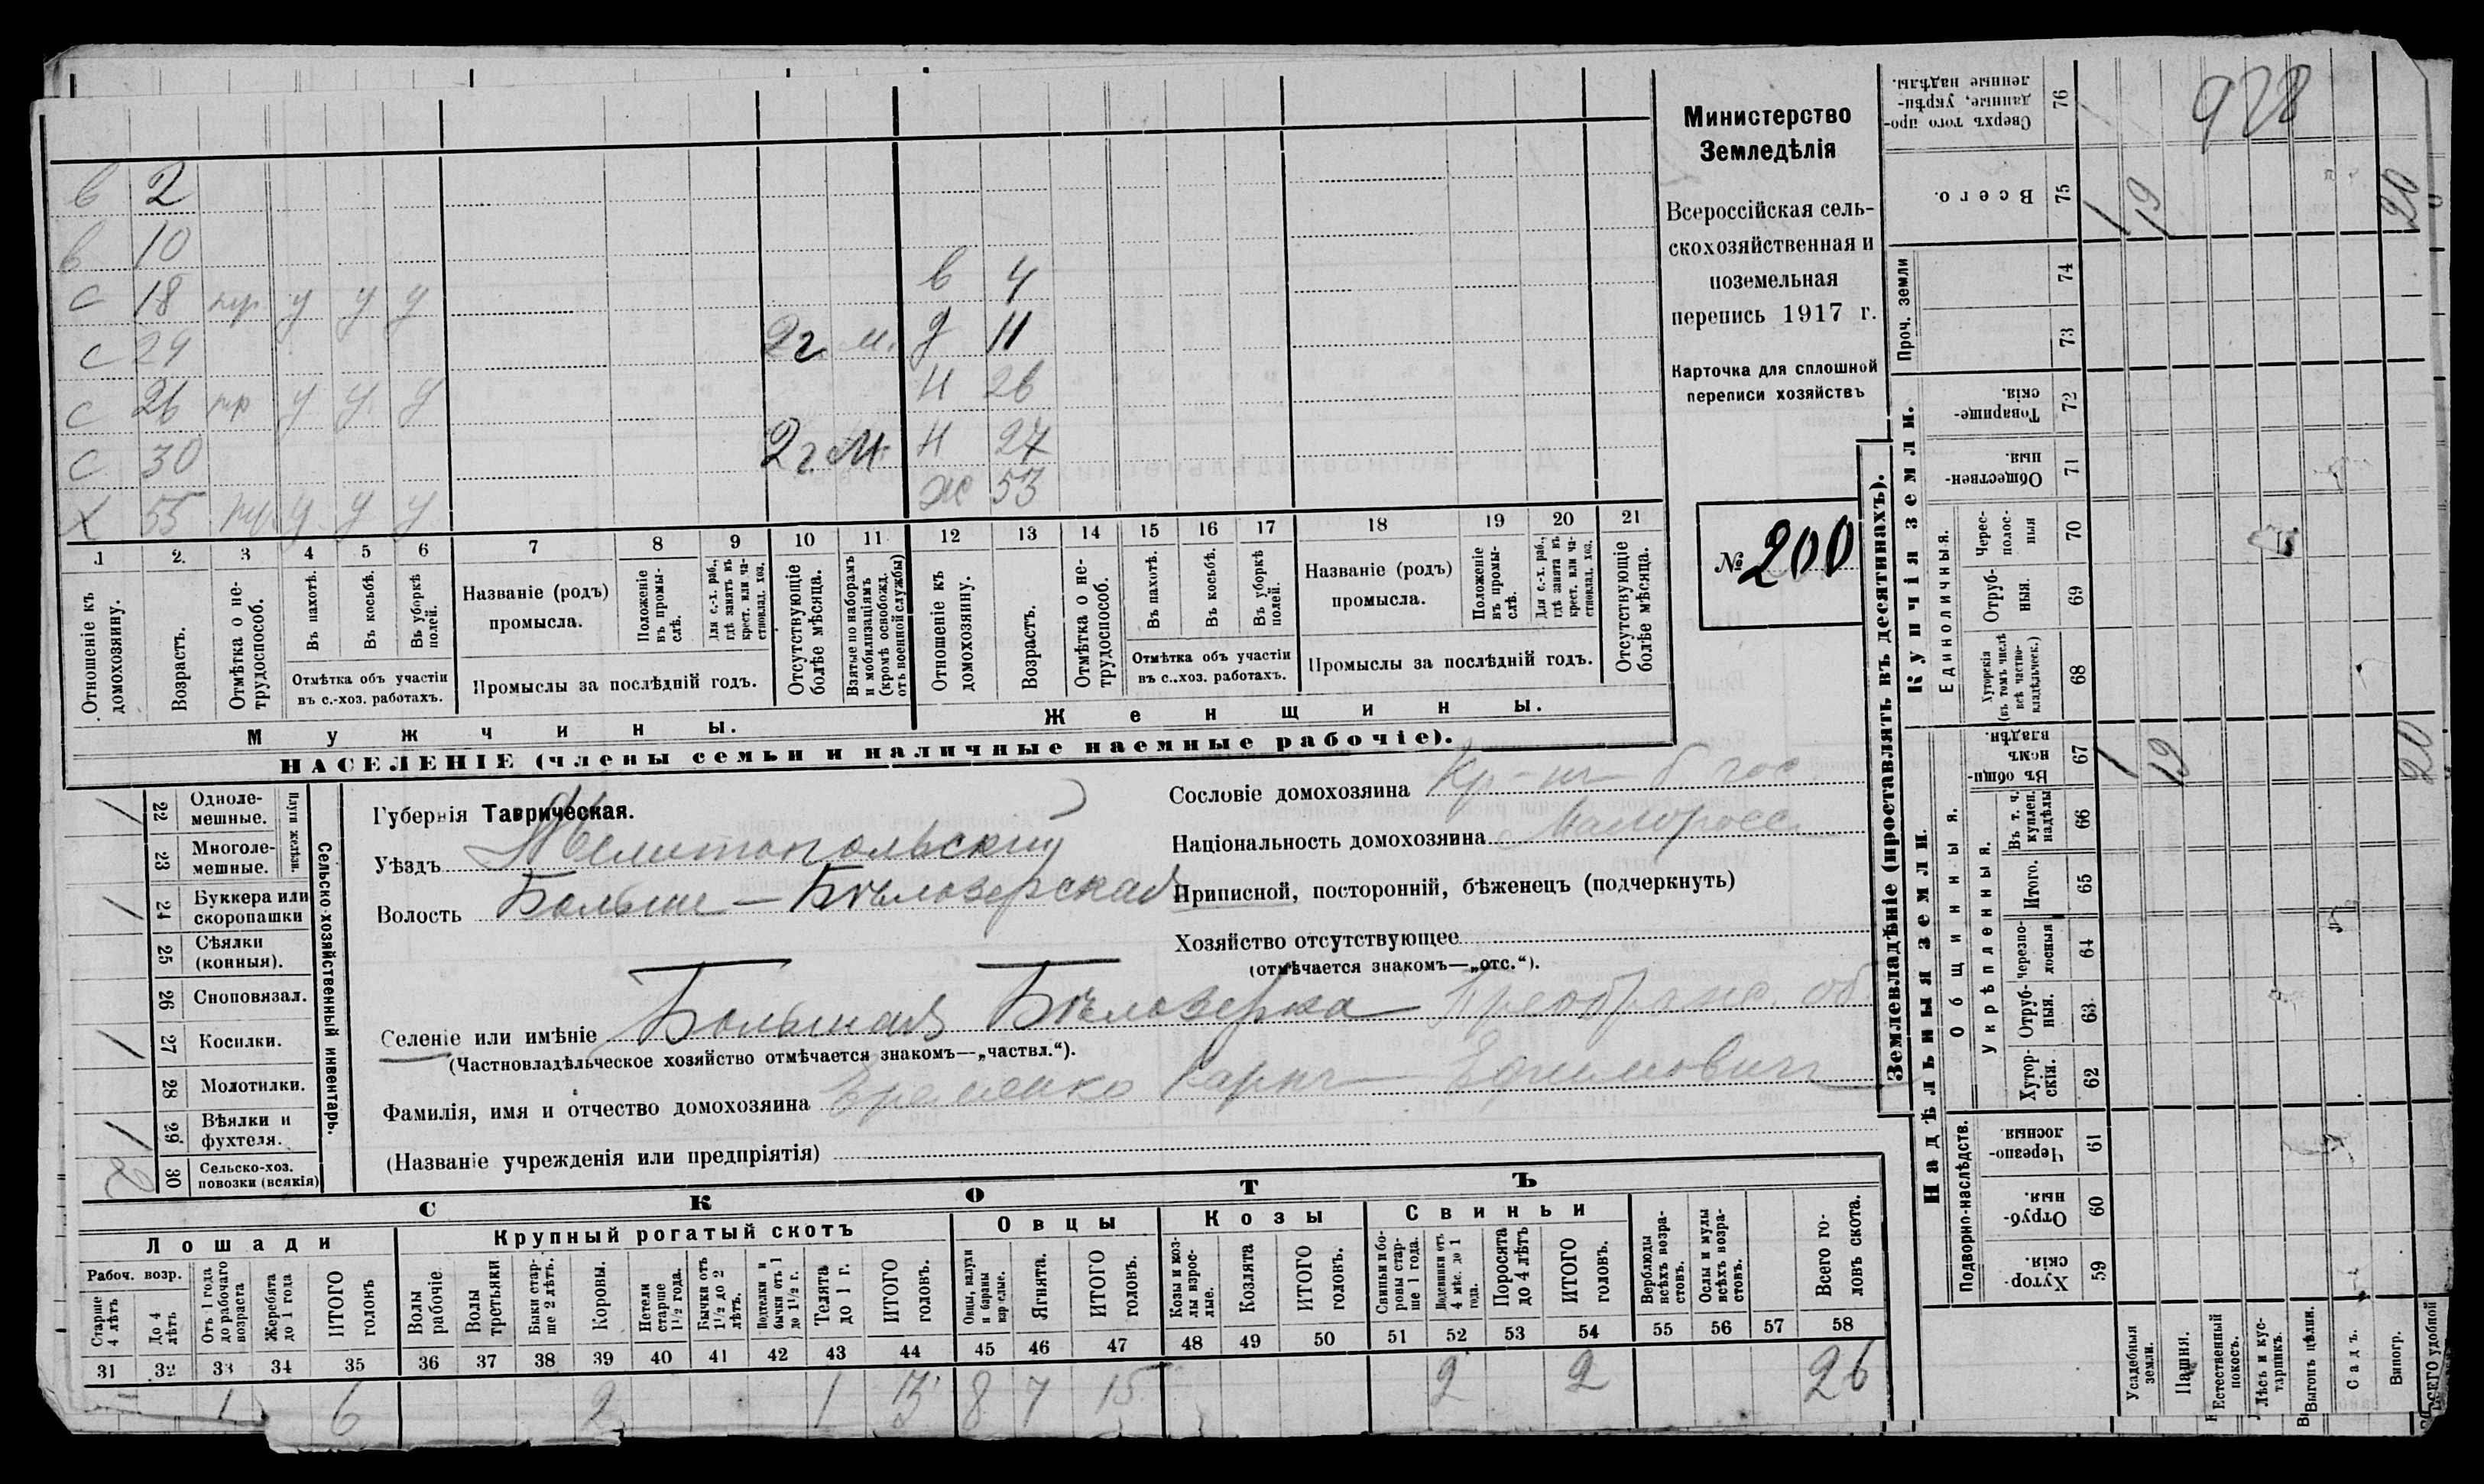 в 2
в 10
с 18 пр у у у
с 24 2 г. м.
с 26 пр у у у
с 30 2 г. м.
х 55 пр у у у
в 4
д 11
н 26
н 27
ж 53
1 2. 3 4 5 6 7 8 9 10 11 12 13 14 15 16 17 18 19 20 21
Отношеніе къ домохозяину.
Возрастъ.
Отмѣтка о не-трудоспособ.
Въ пахотѣ.
Въ косьбѣ.
Въ уборкѣ полей.
Отмѣтка объ участіи
въ с.-хоз. работахъ.
Названіе (родъ)
промысла.
Положеніе въ промы-слѣ.
Для с.-х. раб., гдѣ занятъ въ крест. или ча-стновлад. хоз.
Промыслы за послѣдній годъ.
Отсутствующіе болѣе мѣсяца.
Взятые по наборамъ и мобилизаціямъ (кромѣ освобожд. отъ военной службы)
Отношеніе къ домохозяину.
Возрастъ.
Отмѣтка о не-трудоспособ.
Въ пахотѣ.
Въ косьбѣ.
Въ уборкѣ полей.
Отмѣтка объ участіи
въ с.-хоз. работахъ.
Названіе (родъ)
промысла.
Положеніе въ промы-слѣ.
Для с.-х. раб., гдѣ занята въ крест. или ча-стновлад. хоз.
Промыслы за послѣдній годъ.
Отсутствующіе болѣе мѣсяца.
Мужчины.
Женщины.
НАСЕЛЕНІЕ (члены семьи и наличные наемные рабочіе).
Министерство
Земледѣлія
Всероссійская сель-
скохозяйственная и
поземельная
перепись 1917 г.
Карточка для сплошной
переписи хозяйствъ
№ 200
Сельско-хозяйственный инвентарь.
Плуги желѣзн.
/ 22 Одноле-мешные.
23 Многоле-мешные.
/ 24 Буккера или скоропашки
25 Сѣялки (конныя).
26 Сноповязал.
/ 27 Косилки.
28 Молотилки.
/ 29 Вѣялки и фухтеля.
2 30 Сельско-хоз. повозки (всякія)
Губернія Таврическая.
Уѣздъ Мелитопольскій
Волость Больше-Бѣлозерская
Сословіе домохозяина Кр-нъ б. гос
Національность домохозяина Малоросс.
Приписной, посторонній, бѣженецъ (подчеркнуть)
Хозяйство отсутствующее
(отмѣчается знакомъ—„отс.“).
Селеніе или имѣніе Большая Бѣлозерка Преображ. об.
(Частновладѣльческое хозяйство отмѣчается знакомъ—„частвл.“).
Фамилія, имя и отчество домохозяина Еременко Карпъ Ефимович
(Названіе учрежденія или предпріятія)
СКОТЪ
Лошади
Рабоч. возр.
Старше 4 лѣтъ
До 4 лѣтъ
Отъ 1 года до рабочаго возраста
Жеребята до 1 года
ИТОГО головъ
Крупный рогатый скотъ
Волы рабочіе
Волы третьяки
Быки стар-ше 2 лѣтъ.
Коровы.
Нетели старше 1½ года.
Бычки отъ 1½ до 2 лѣтъ.
Подтелки и бычки отъ 1 до 1½ г.
Телята до 1 г.
ИТОГО головъ.
Овцы
Овцы, валухи и бараны взрослые.
Ягнята.
ИТОГО головъ.
Козы
Козы и коз-лы взрос-лые.
Козлята
ИТОГО головъ.
Свиньи
Свиньи и бо-ровы стар-ше 1 года.
Подсвинки отъ 4 мѣс. до 1 года.
Поросята до 4 лѣтъ
ИТОГО головъ.
Верблюды всѣхъ возра-стовъ.
Ослы и мулы всѣхъ возра-стовъ.
Всего го-ловъ скота.
31 32 33 34 35 36 37 38 39 40 41 42 43 44 45 46 47 48 49 50 51 52 53 54 55 56 57 58
1 6 2 1 3 8 7 15 2 2 26
Землевладѣніе (проставлять въ десятинахъ).
Надѣльныя земли.
Купчія земли.
Проч. земли
Подворно-наслѣдств.
Общинныя.
Укрѣпленныя.
Единоличныя.
928
Сверхъ того про-данные, укрѣп-ленные надѣлы. 76
Всего. 75 1 19 20
74
73
Товарище-скія. 72
Обществен-ныя. 71
Черес-полос-ныя 70
Отруб-ныя. 69
Хуторскія (въ томъ числѣ всѣ частно-владѣльческ.) 68
Въ общин-номъ владѣн. 67 1 19 20
Въ т. ч. куплен. надѣлы 66
Итого. 65
Черезпо-лосныя 64
Отруб-ныя. 63
Хутор-скія. 62
Черезпо-лосныя. 61
Отруб-ныя. 60
Хутор-скія. 59
Усадебныя земли.
Пашня.
Естественный покосъ.
Лѣсъ и кус-тарникъ.
Выгонъ цѣлин.
Садъ.
Виногр.
ВСЕГО удобной